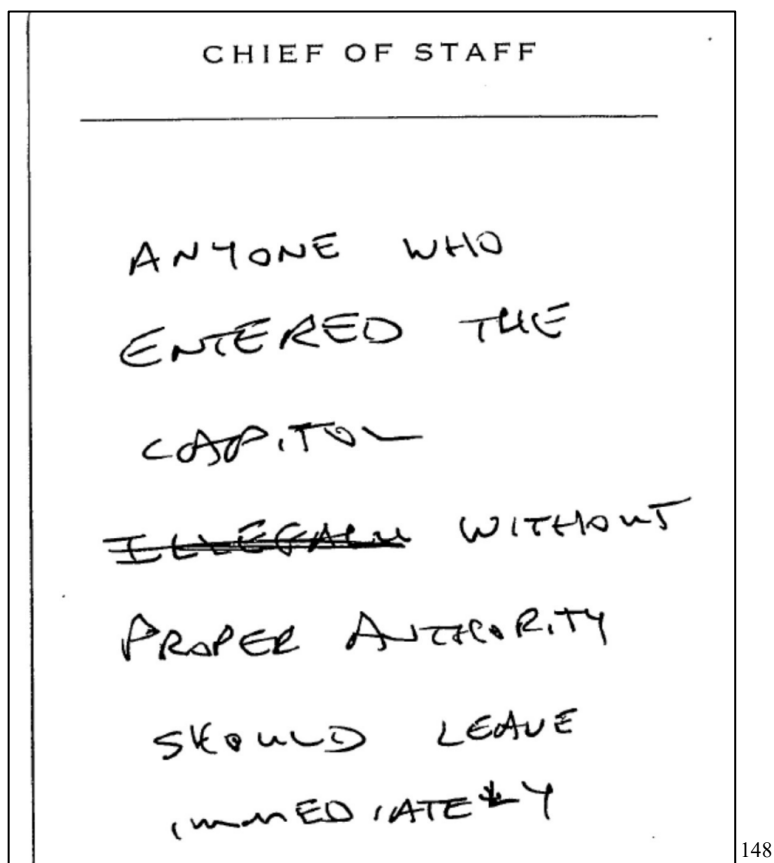 CHIEF OF STAFF
ANYONE WHO
ENTERED THE
CAPITOL
ILLEGALLY WITHOUT
PROPER AUTHORITY
SHOULD LEAVE
IMMEDIATELY
148